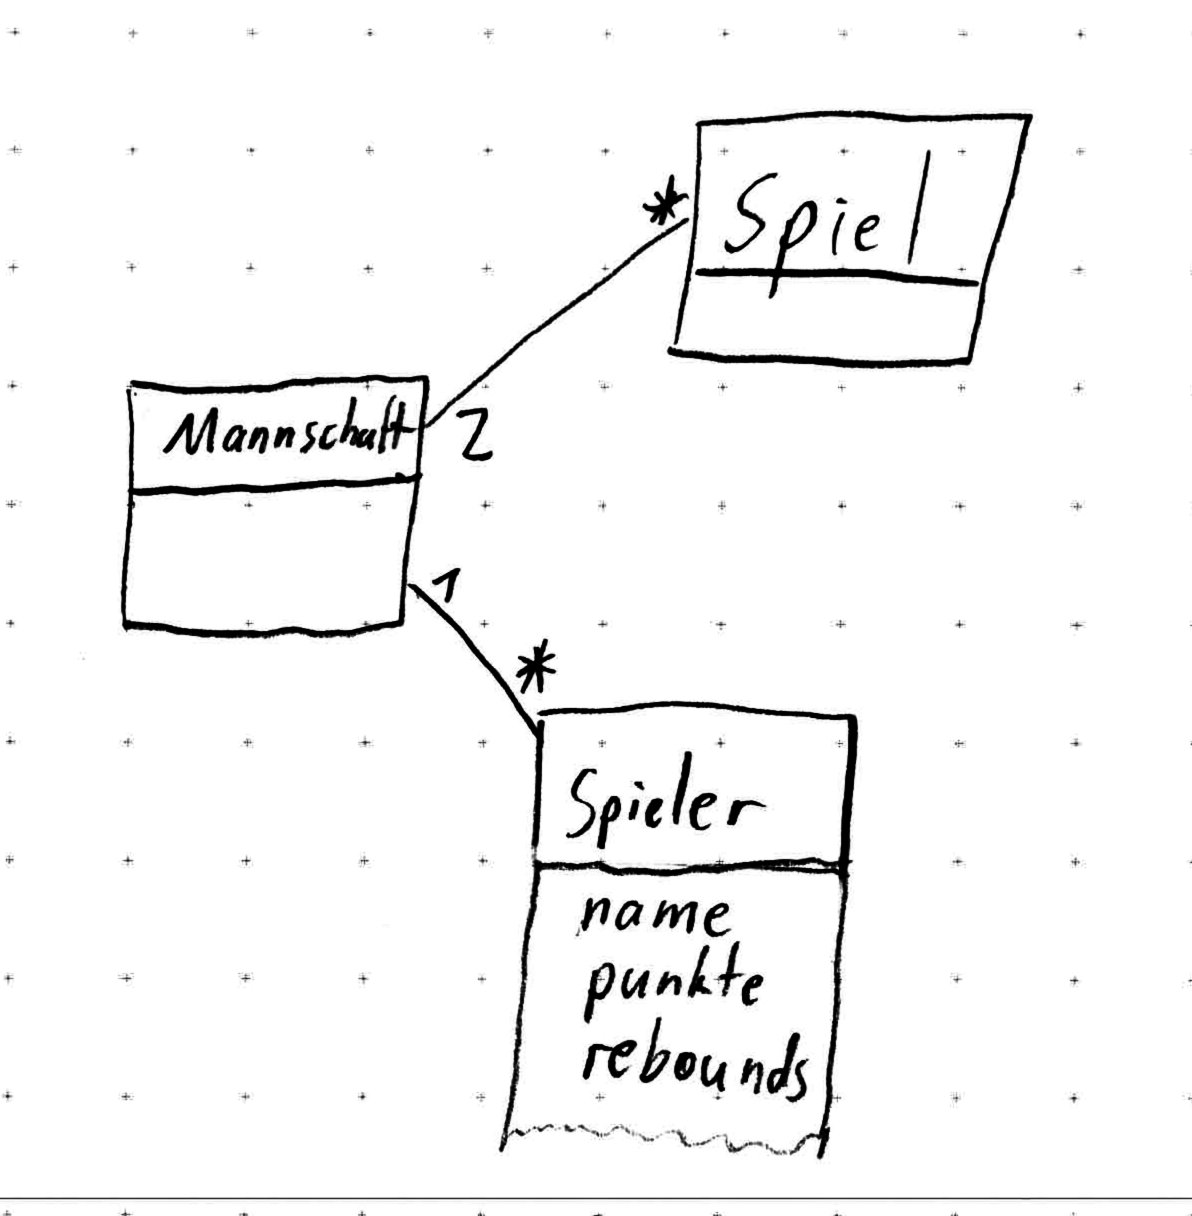 *
Spiel
Mannschaft
2
1
*
Spieler
name
punkte
rebounds